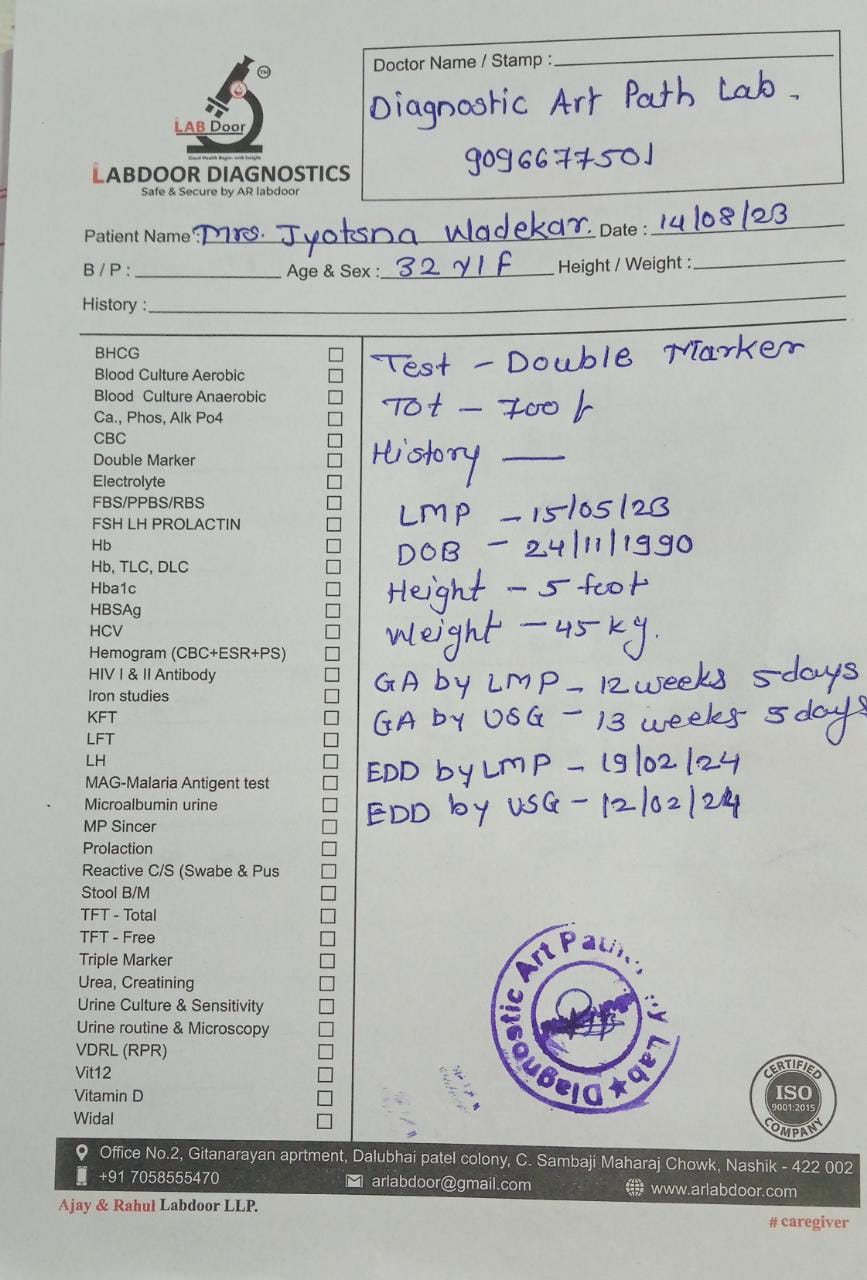 Doctor Name / Stamp :
Diagnostic Art Path Lab.
9096677501
TM
LAB Door
Good Health Began with Insight
LABDOOR DIAGNOSTICS
Safe & Secure by AR labdoor
Patient Name : Mrs. Jyotsna Wadekar. Date : 14/08/23
B / P : Age & Sex : 32 Y/F Height / Weight :
History :
BHCG
Blood Culture Aerobic
Blood Culture Anaerobic
Ca., Phos, Alk Po4
CBC
Double Marker
Electrolyte
FBS/PPBS/RBS
FSH LH PROLACTIN
Hb
Hb, TLC, DLC
Hba1c
HBSAg
HCV
Hemogram (CBC+ESR+PS)
HIV I & II Antibody
Iron studies
KFT
LFT
LH
MAG-Malaria Antigent test
Microalbumin urine
MP Sincer
Prolaction
Reactive C/S (Swabe & Pus
Stool B/M
TFT - Total
TFT - Free
Triple Marker
Urea, Creatining
Urine Culture & Sensitivity
Urine routine & Microscopy
VDRL (RPR)
Vit12
Vitamin D
Widal
Test - Double Marker
Tot - 700
History —
LMP - 15/05/23
DOB - 24/11/1990
Height - 5 foot
Weight - 45 kg.
GA by LMP - 12 weeks 5 days
GA by USG - 13 weeks 5 days
EDD by LMP - 19/02/24
EDD by USG - 12/02/24
Diagnostic Art Lab
CERTIFIED
ISO
9001:2015
COMPANY
Office No.2, Gitanarayan aprtment, Dalubhai patel colony, C. Sambaji Maharaj Chowk, Nashik - 422 002
+91 7058555470 arlabdoor@gmail.com www.arlabdoor.com
Ajay & Rahul Labdoor LLP.
# caregiver